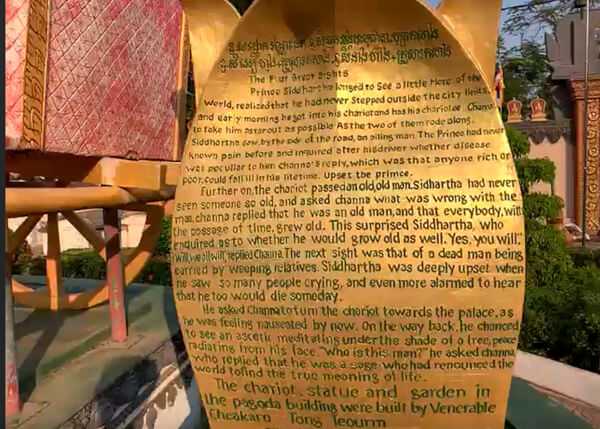 The Four Great Sights
Prince Siddhartha longed to See a little More of the
World, realized that he had never Stepped outside The city limits,
and early morning he got into his chariot and has his chariotee Channa
to take him as tar out as possible As the two of them rode along,
Siddhartha saw, by the side of the road, an ailing man. The Prince had never
known pain before and inquired after his driver whether disease
was peculiar to him channa's reply, which was that anyone rich or
poor, could fall ill in his lifetime. Upset the prince.
Further on, the chariot passed an old, old man. Sidhartha had never
seen someone so old, and asked channa what was wrong with the
man, channa replied that he was an old man, and that everybody, with
the passage of time, grew old. This surprised Siddhartha, who
enquired as to whether he would grow old as well. "Yes, you will,"
"I will, we all will," replied Channa. The next sight was that of a dead man being
carried by weeping relatives. Siddhartha was deeply upset when
he saw so many people crying, and even more alarmed to hear
that he too would die someday.
He asked Channa to turn the chariot towards the palace, as
he was feeling nauseated by now. On the way back, he chanced
to see an ascetic meditating under the shade of a tree, peace
radiating from his face. "Who is this man?" he asked channa,
who replied that he was a sage who had renounced the
world to find the true meaning of life.
The chariot, statue and garden in
the pagoda building were built by Venerable
Cheakaro Tong Leourm